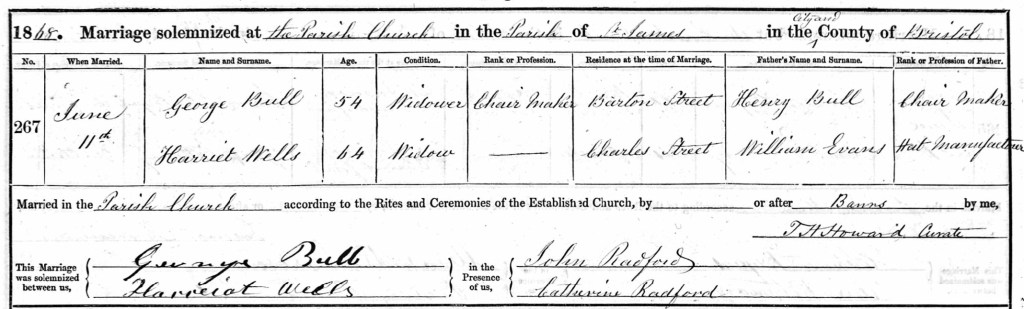 1868. Marriage solemnized at the Parish Church in the Parish of St James in the City and County of Bristol
No. When Married. Name and Surname. Age. Condition. Rank or Profession. Residence at the time of Marriage. Father's Name and Surname. Rank or Profession of Father.
267 June 11th George Bull 54 Widower Chair Maker Barton Street Henry Bull Chair Maker
Harriet Wells 64 Widow Charles Street William Evans Hat Manufacturer
Married in the Parish Church according to the Rites and Ceremonies of the Established Church, by or after Banns by me,
T H Howard Curate
This Marriage was solemnized between us, George Bull in the Presence of us, John Radford
Harreiot Wells Catherine Radford